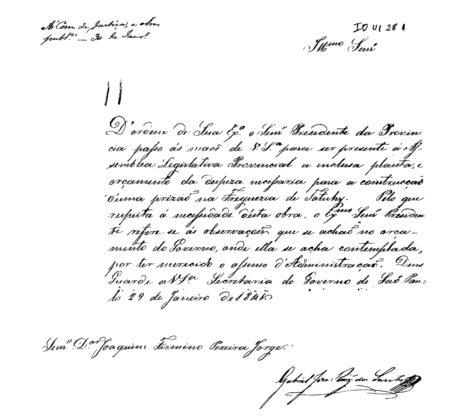 Às Com. de Justiça, e obras
publ.as — 30 de Janr.o
IO VI 28 1
Ill.mo Senr.
D'ordem de Sua Ex.a o Senr. Presidente da Provin-
cia passo ás mãos de V. S.a para ser presente á As-
sembléa Legislativa Provincial a inclusa planta, e
orçamento da despeza necessaria para a construcção
d'uma prizão na Freguezia de Tatuhy. Pelo que
respeita á necessidade d'esta obra, o Ex.mo Senr. Presiden-
te refere-se ás observações que se achão no orça-
mento do Governo, onde ella se acha contemplada,
por ter merecido o assenso d'Administração. Deos
Guarde a V. S.a Secretaria do Governo de São Pau-
lo 29 de Janeiro de
Senr. D.or Joaquim Firmino Pereira Jorge.
Gabriel José Roiz dos Santos